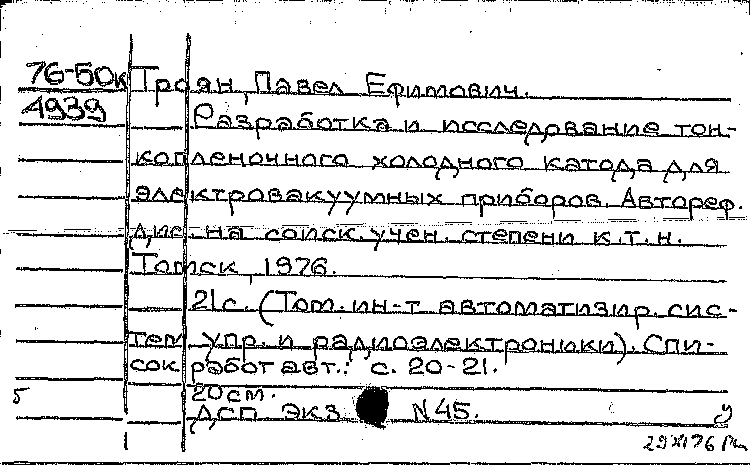 76-50к Троян, Павел Ефимович.
4939
Разработка и исследование тон-
копленочного холодного катода для
электровакуумных приборов. Автореф.
дис. на соиск. учен. степени к.т.н.
Томск, 1976.
21с. (Том. ин-т автоматизир. сис-
тем упр. и радиоэлектроники). Спи-
сок работ авт.: с. 20-21.
20см.
б
ДСП Экз N45.
у